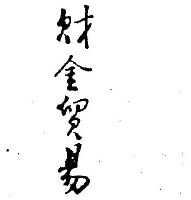 财金贸易